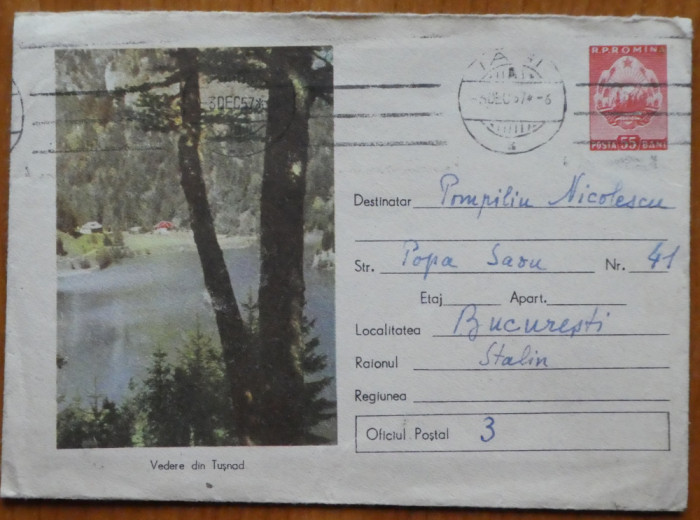 R.P.ROMINA
POSTA 55 BANI
IAȘI
-3DEC57*-6
3DEC57*6
Destinatar Pompiliu Nicolescu
Str. Popa Savu Nr. 41
Etaj Apart.
Localitatea București
Raionul Stalin
Regiunea
Oficiul Poștal 3
Vedere din Tușnad